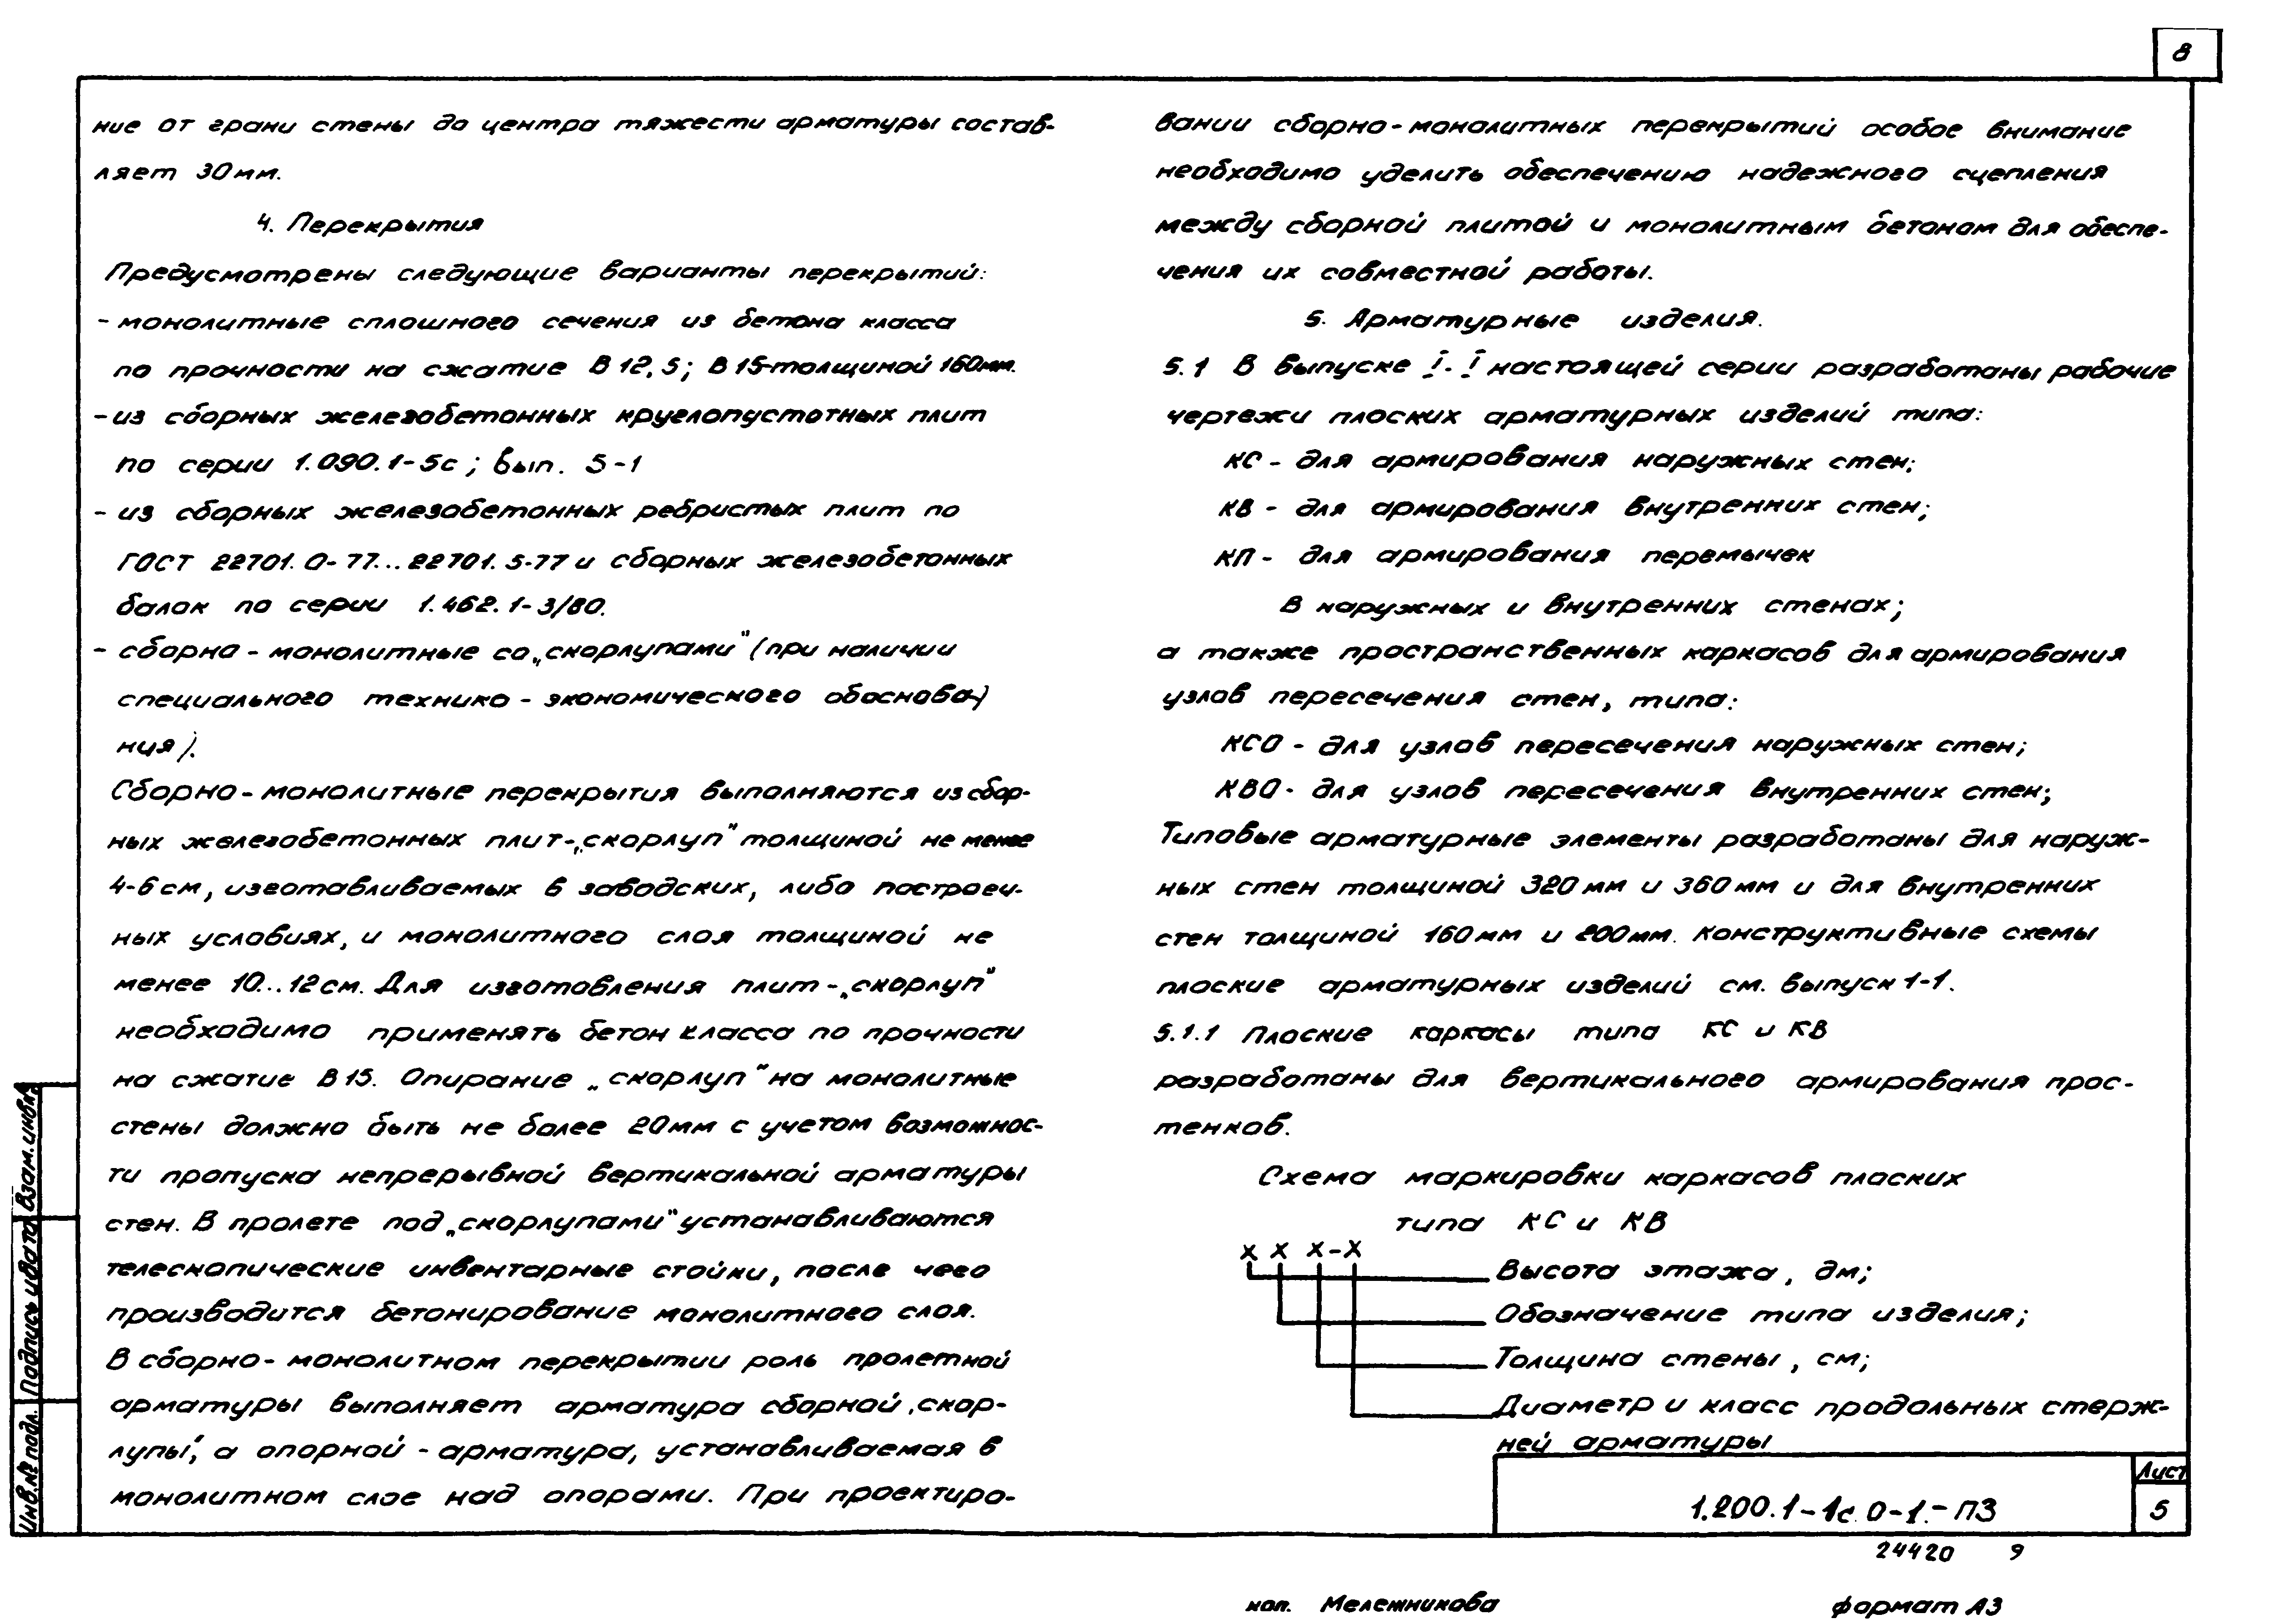 8
ние от грани стены до центра тяжести арматуры состав-
ляет 30мм.
4. Перекрытия
Предусмотрены следующие варианты перекрытий:
- монолитные сплошного сечения из бетона класса
по прочности на сжатие В 12,5; В 15-толщиной 160мм.
- из сборных железобетонных круглопустотных плит
по серии 1.090.1-5с; вып. 5-1
- из сборных железобетонных ребристых плит по
ГОСТ 22701.0-77...22701.5-77 и сборных железобетонных
балок по серии 1.462.1-3/80.
- сборно-монолитные со „скорлупами" (при наличии
специального технико-экономического обоснова-)
ния).
Сборно-монолитные перекрытия выполняются из сбор-
ных железобетонных плит-„скорлуп" толщиной не менее
4-6см, изготавливаемых в заводских, либо построеч-
ных условиях, и монолитного слоя толщиной не
менее 10...12см. Для изготовления плит-„скорлуп"
необходимо применять бетон класса по прочности
на сжатие В15. Опирание „скорлуп" на монолитные
стены должно быть не более 20мм с учетом возможнос-
ти пропуска непрерывной вертикальной арматуры
стен. В пролете под „скорлупами" устанавливаются
телескопические инвентарные стойки, после чего
производится бетонирование монолитного слоя.
В сборно-монолитном перекрытии роль пролетной
арматуры выполняет арматура сборной „скор-
лупы", а опорной - арматура, устанавливаемая в
монолитном слое над опорами. При проектиро-
вании сборно-монолитных перекрытий особое внимание
необходимо уделить обеспечению надежного сцепления
между сборной плитой и монолитным бетоном для обеспе-
чения их совместной работы.
5. Арматурные изделия.
5.1 В выпуске I-I настоящей серии разработаны рабочие
чертежи плоских арматурных изделий типа:
КС - для армирования наружных стен;
КВ - для армирования внутренних стен;
КП - для армирования перемычек
в наружных и внутренних стенах;
а также пространственных каркасов для армирования
узлов пересечения стен, типа:
КСО - для узлов пересечения наружных стен;
КВО - для узлов пересечения внутренних стен;
Типовые арматурные элементы разработаны для наруж-
ных стен толщиной 320мм и 360мм и для внутренних
стен толщиной 160мм и 200мм. Конструктивные схемы
плоские арматурных изделий см. выпуск 1-1.
5.1.1 Плоские каркасы типа КС и КВ
разработаны для вертикального армирования прос-
тенков.
Схема маркировки каркасов плоских
типа КС и КВ
X X X-X
Высота этажа, дм;
Обозначение типа изделия;
Толщина стены, см;
Диаметр и класс продольных стерж-
ней арматуры
Инв.№ подл. Подпись и дата Взам.инв.№
1.200.1-1с.0-1.-ПЗ
Лист
5
24420 9
коп. Мележникова формат А3